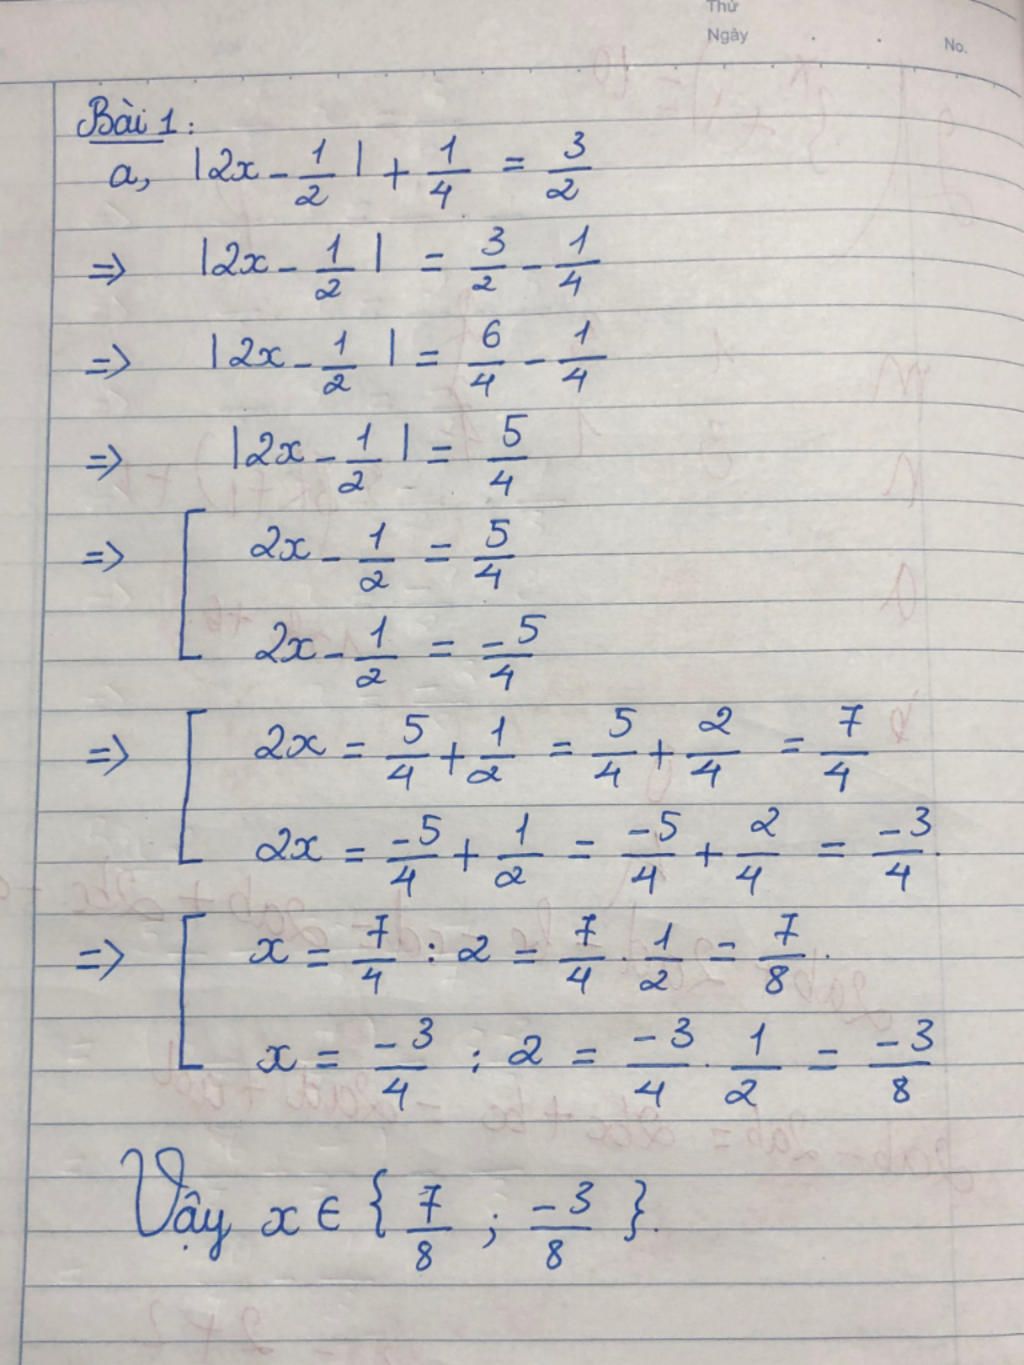 Thứ
Ngày . .
No.
Bài 1:
a, |2x - 1/2| + 1/4 = 3/2
=> |2x - 1/2| = 3/2 - 1/4
=> |2x - 1/2| = 6/4 - 1/4
=> |2x - 1/2| = 5/4
=> [ 2x - 1/2 = 5/4
2x - 1/2 = -5/4
=> [ 2x = 5/4 + 1/2 = 5/4 + 2/4 = 7/4
2x = -5/4 + 1/2 = -5/4 + 2/4 = -3/4.
=> [ x = 7/4 : 2 = 7/4 . 1/2 = 7/8.
x = -3/4 : 2 = -3/4 . 1/2 = -3/8
Vậy x ∈ {7/8 ; -3/8}.